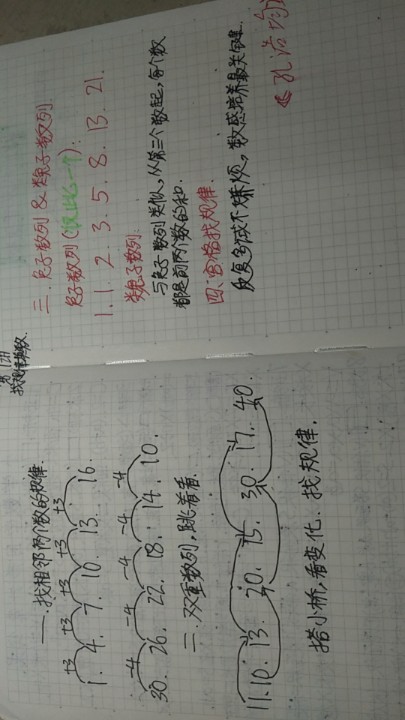 找规律填数.
一.找相邻两个数的规律.
+3 +3 +3 +3 +3
1. 4. 7. 10. 13. 16.
-4 -4 -4 -4 -4
30. 26. 22. 18. 14. 10.
二.双重数列,跳着看.
11. 10. 13. 20. 15. 30. 17. 40.
搭小桥,看变化.找规律.
三.兔子数列&类兔子数列.
兔子数列(仅此一个):
1. 1 2. 3. 5. 8. 13. 21.
类兔子数列:
与兔子数列类似,从第三个数起,每个数
都是前两个数的和.
四.宫格找规律.
反复多试不嫌烦,数感培养最关键.